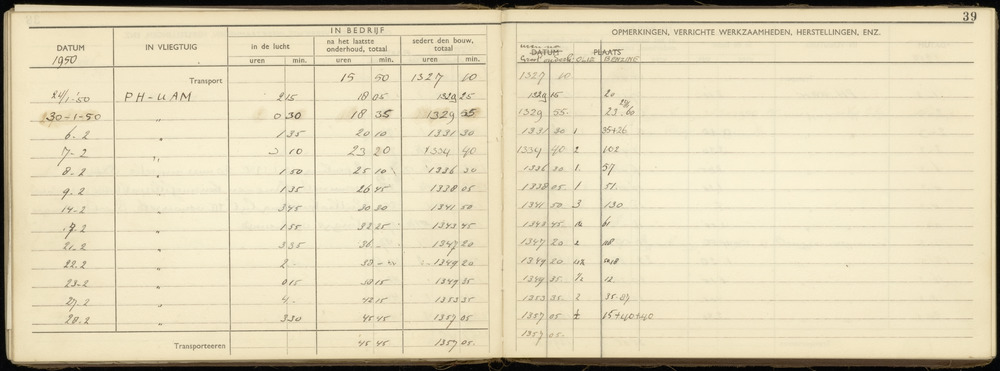 39
IN BEDRIJF
DATUM IN VLIEGTUIG in de lucht na het laatste onderhoud, totaal sedert den bouw, totaal OPMERKINGEN, VERRICHTE WERKZAAMHEDEN, HERSTELLINGEN, ENZ.
1950 uren min. uren min. uren min. DATUM PLAATS OLIE BENZINE
Transport 15 50 1327 10 1327 10
24/1-'50 PH-UAM 2 15 18 05 1329 25 1329 15 20
30-1-50 " 0 30 18 35 1329 55 1329 55 23 60
6.2 " 1 35 20 10 1331 30 1331 30 1 35+26
7-2 " 3 10 23 20 1334 40 1334 40 2 102
8-2 " 1 50 25 10 1336 30 1336 30 1 57
9.2 " 1 35 26 45 1338 05 1338 05 1 51
14-2 " 3 45 30 30 1341 50 1341 50 3 130
17.2 " 1 55 32 25 1343 45 1343 45 61
21-2 " 3 35 36 - 1347 20 1347 20 2
22.2 " 2 - 38 - 1349 20 1349 20
23-2 " 0 15 38 15 1349 35 1349 35 ½ 12
27.2 " 4 - 42 15 1353 35 1353 35 2
28.2 " 3 30 45 45 1357 05 1357 05 15+40+40
Transporteeren 45 45 1357 05 1357 05